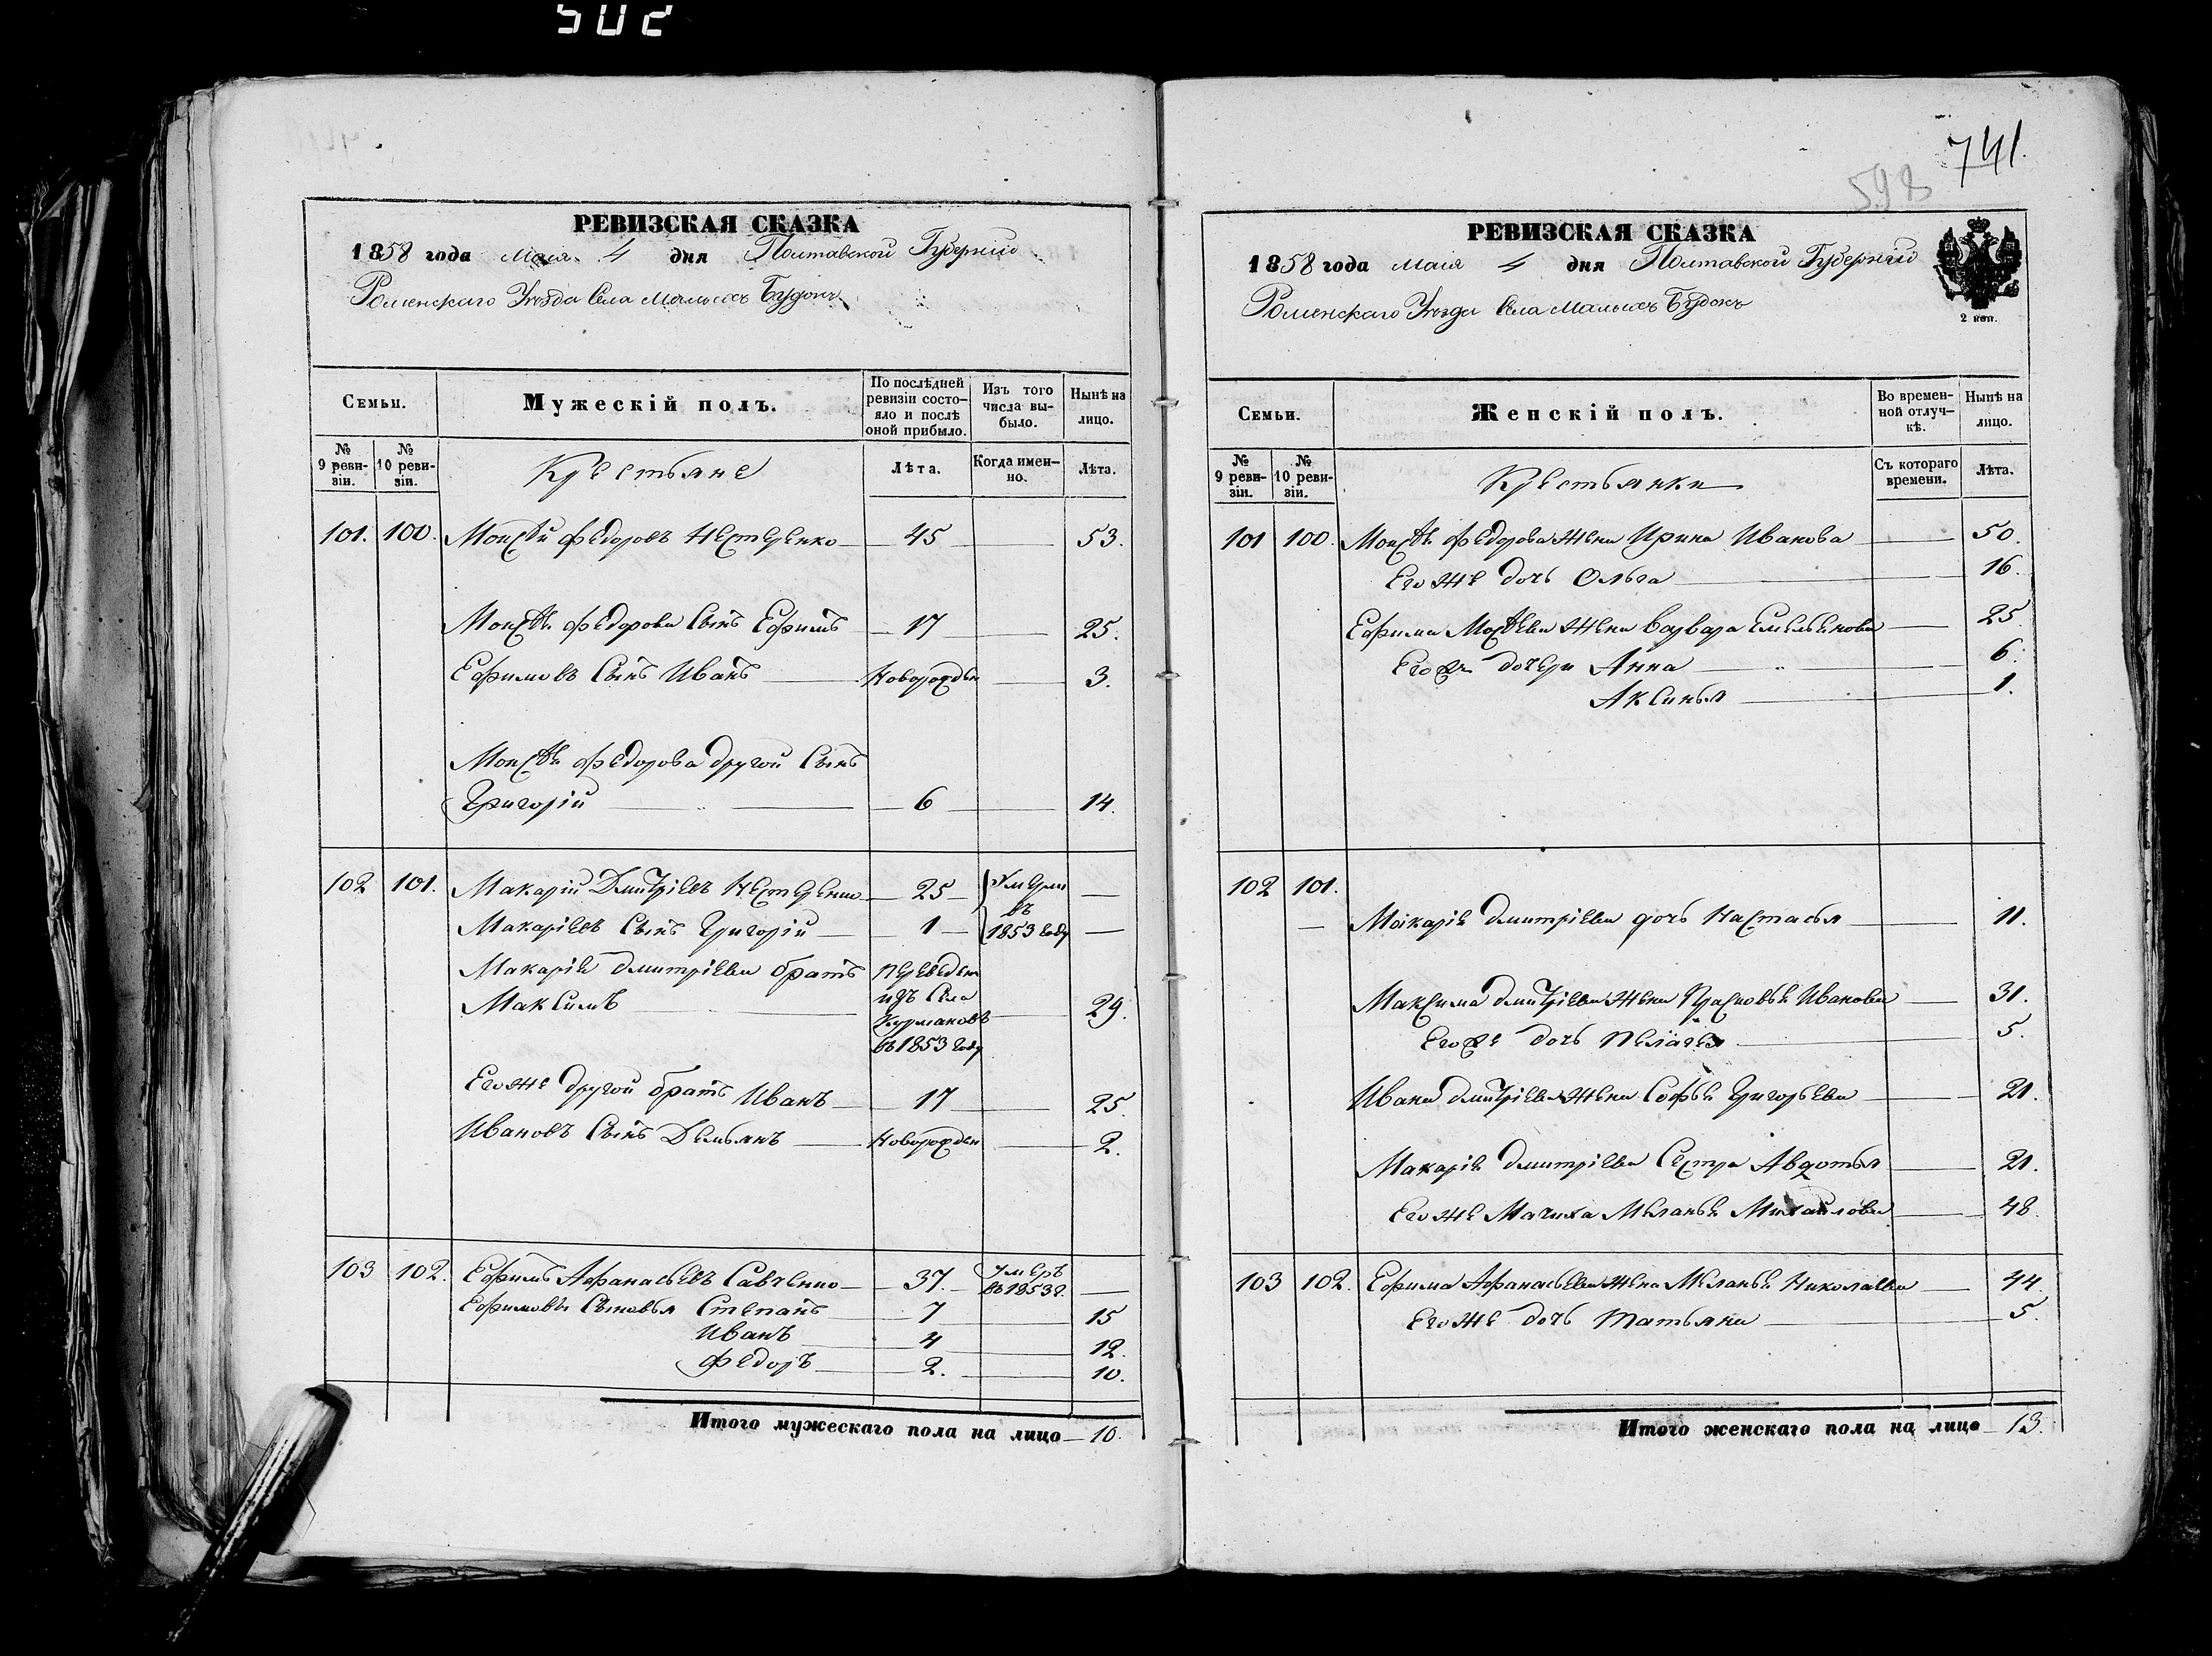 502
РЕВИЗСКАЯ СКАЗКА
1858 года маія 4 дня Полтавской Губерніи
Роменскаго Уезда Села Малыхъ Будокъ
Семьи.
Мужескій полъ.
По послѣдней ревизіи состо-яло и послѣ оной прибыло.
Изъ того числа вы-было.
Нынѣ на лицо.
№ 9 реви-зіи.
№ 10 реви-зіи.
Крестьяне
Лѣта.
Когда имен-но.
Лѣта.
101. 100. Моисей Федоровъ Нестеренко 45 53.
Моисея Федорова Сынъ Ефимъ 17 25.
Ефимовъ Сынъ Иванъ Новорожден 3.
Моисея Федорова другой Сынъ
Григорій 6 14.
102 101. Макарій Дмитріевъ Нестеренко 25 Умерли —
въ
Макаріевъ Сынъ Григорій 1 1853 году —
Макарія дмитріева братъ переведен
Максимъ изъ Села 29.
Курмановъ
въ 1853 году
Его же другой братъ Иванъ 17 25.
Ивановъ Сынъ Демьянъ Новорожден 2.
103 102. Ефимъ Афанасьевъ Савченко 37. умеръ въ 1853 г. —
Ефимовы Сыновья Степанъ 7 15
Иванъ 4 12.
Федоръ 2. 10.
Итого мужескаго пола на лицо 10.
741.
598
РЕВИЗСКАЯ СКАЗКА
1858 года маія 4 дня Полтавской Губерніи
Роменскаго Уезда Села Малыхъ Будокъ
2 коп.
Семьи.
Женскій полъ.
Во времен-ной отлуч-кѣ.
Нынѣ на лицо.
№ 9 реви-зіи.
№ 10 реви-зіи.
Крестьянки
Съ котораго времени.
Лѣта.
101 100. Моисея Федорова жена Ирина Иванова 50.
Его же дочь Ольга 16.
Ефима Мосеева жена Варвара Емельянова 25
Его же дочери Анна 6.
Аксинья 1.
102 101.
Макарія дмитріева дочь Настасья 11.
Максима дмитріева жена Прасковья Иванова 31.
Его же дочь Пелагея 5.
Ивана дмитріева жена Софья Григорьева 21.
Макарія дмитріева Сестра Авдотья 21.
Его же Мачиха Меланья Михайлова 48.
103 102. Ефима Афанасьева жена Меланья Николаева 44.
Его же дочь Татьяна 5.
Итого женскаго пола на лицо 13.